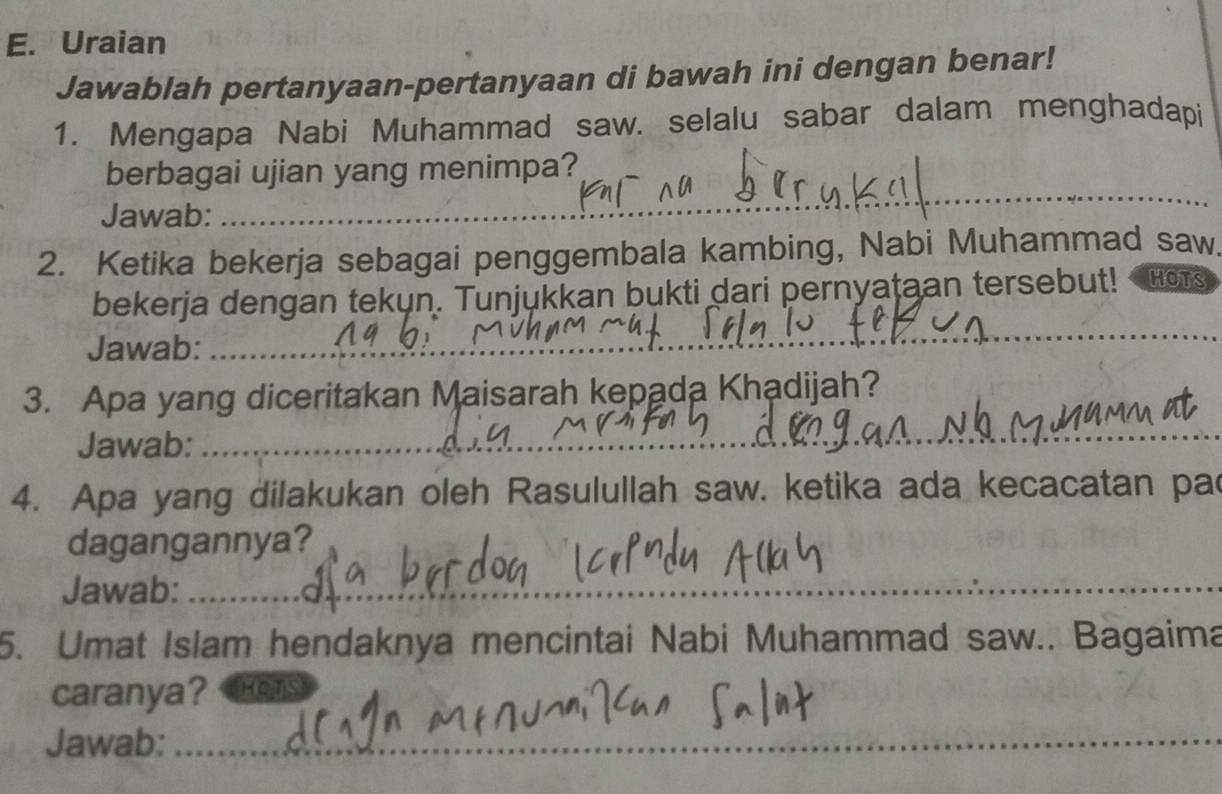 E. Uraian
Jawablah pertanyaan-pertanyaan di bawah ini dengan benar!
1. Mengapa Nabi Muhammad saw. selalu sabar dalam menghadapi
berbagai ujian yang menimpa?
Jawab: kar na
2. Ketika bekerja sebagai penggembala kambing, Nabi Muhammad saw.
bekerja dengan tekun. Tunjukkan bukti dari pernyataan tersebut! HOTS
Jawab: na bi muhammat selalu tekun
3. Apa yang diceritakan Maisarah kepada Khadijah?
Jawab: dia dengan Nb Muhammat
4. Apa yang dilakukan oleh Rasulullah saw. ketika ada kecacatan pa
dagangannya?
Jawab: dia berdoa kepada Allah
5. Umat Islam hendaknya mencintai Nabi Muhammad saw.. Bagaima
caranya? HOTS
Jawab: salat